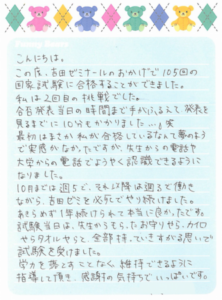 こんにちは。
この度、吉田ゼミナールのおかげで105回の
国家試験に合格することができました。
私は2回目の挑戦でした。
合否発表当日の時間まで手がふるえて発表を
見るまでに10分もかかりました…。
最初はまさか私が合格しているなんて夢のよう
で実感がなかったですが、先生からの電話や
大学からの電話でようやく認識できるように
なりました。
10月までは週5で、それ以降は週3で働き
ながら、吉田ゼミを必死でやり続けました。
あきらめず1年続けられて本当に良かったです。
試験当日は、先生からもらったお守りやら、カイロ
やらタオルやらと、全部持っていきすがる思いで
試験を受けました。
学力を落とすことなく維持できるように
指導して頂き、感謝の気持ちでいっぱいです。